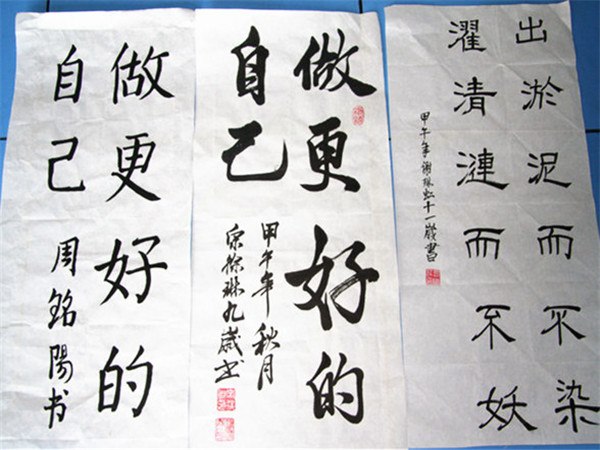 出淤泥而不染
濯清漣而不妖
甲午年 十一歲書
做更好的
自己
甲午年 秋月
九歲书
做更好的
自己 周銘陽书